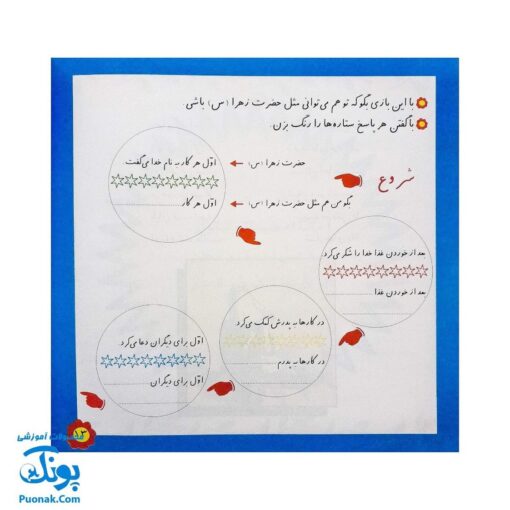 با این بازی بگو که تو هم می‌توانی مثل حضرت زهرا (س) باشی
با گفتن هر پاسخ ستاره‌ها را رنگ بزن.
شروع
حضرت زهرا (س)
اوّل هر کار به نام خدا می‌گفت
بگو من هم مثل حضرت زهرا (س)
اوّل هر کار
بعد از خوردن غذا خدا را شکر می‌کرد
بعد از خوردن غذا
در کارها به پدرش کمک می‌کرد
در کارها به پدرم
اوّل برای دیگران دعا می‌کرد
اوّل برای دیگران
۱۳
محصولات آموزشی
پونک
Puonak.Com